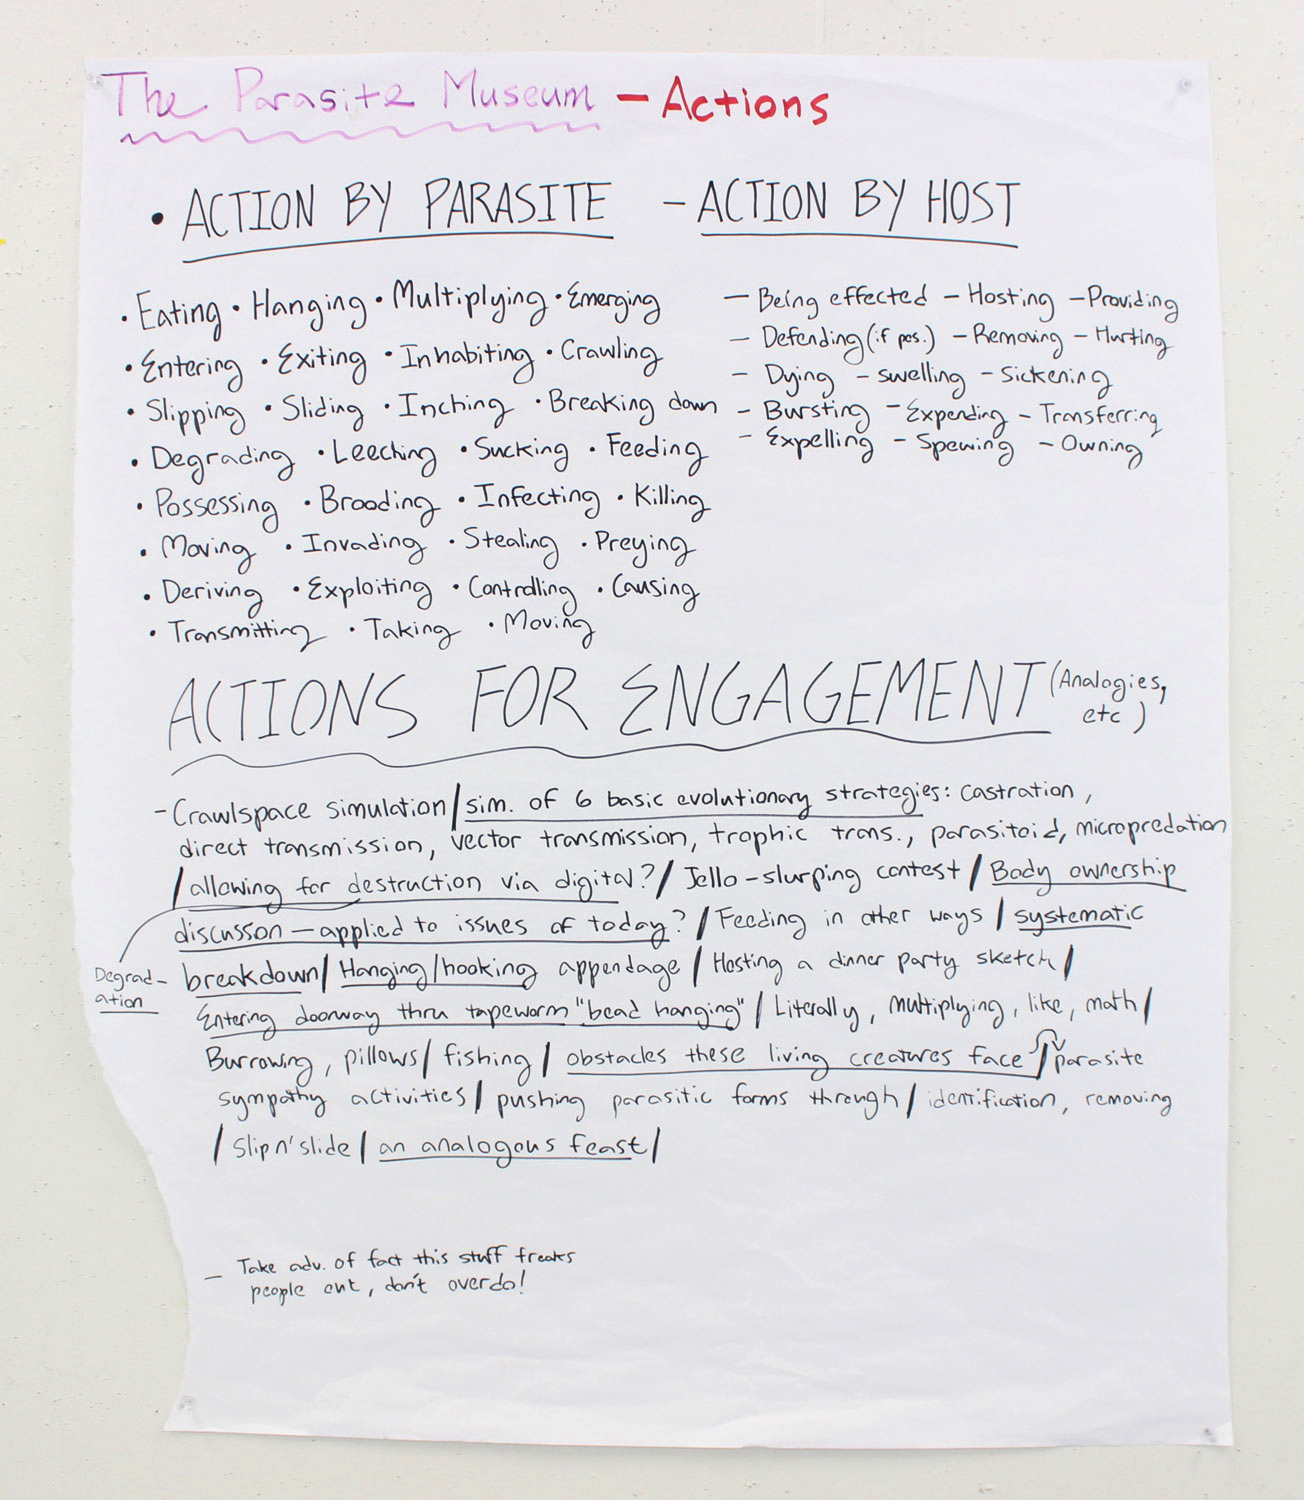 The Parasite Museum - Actions
• ACTION BY PARASITE
• Eating • Hanging • Multiplying • Emerging
• Entering • Exiting • Inhabiting • Crawling
• Slipping • Sliding • Inching • Breaking down
• Degrading • Leeching • Sucking • Feeding
• Possessing • Brooding • Infecting • Killing
• Moving • Invading • Stealing • Preying
• Deriving • Exploiting • Controlling • Causing
• Transmitting • Taking • Moving
- ACTION BY HOST
- Being effected - Hosting - Providing
- Defending (if pos.) - Removing - Hurting
- Dying - swelling - Sickening
- Bursting - Expending - Transferring
- Expelling - Spewing - Owning
ACTIONS FOR ENGAGEMENT (Analogies,
etc)
- Crawlspace simulation / sim. of 6 basic evolutionary strategies: castration,
direct transmission, vector transmission, trophic trans., parasitoid, micropredation
/ allowing for destruction via digital? / Jello-slurping contest / Body ownership
discusson - applied to issues of today? / Feeding in other ways / systematic
Degrad-
ation
breakdown / Hanging/hooking appendage / Hosting a dinner party sketch /
Entering doorway thru tapeworm "bead hanging" / Literally, multiplying, like, math /
Burrowing, pillows / fishing / obstacles these living creatures face / parasite
sympathy activities / pushing parasitic forms through / identification, removing
/ slip n' slide / an analogous feast /
- Take adv. of fact this stuff freaks
people out, don't overdo!